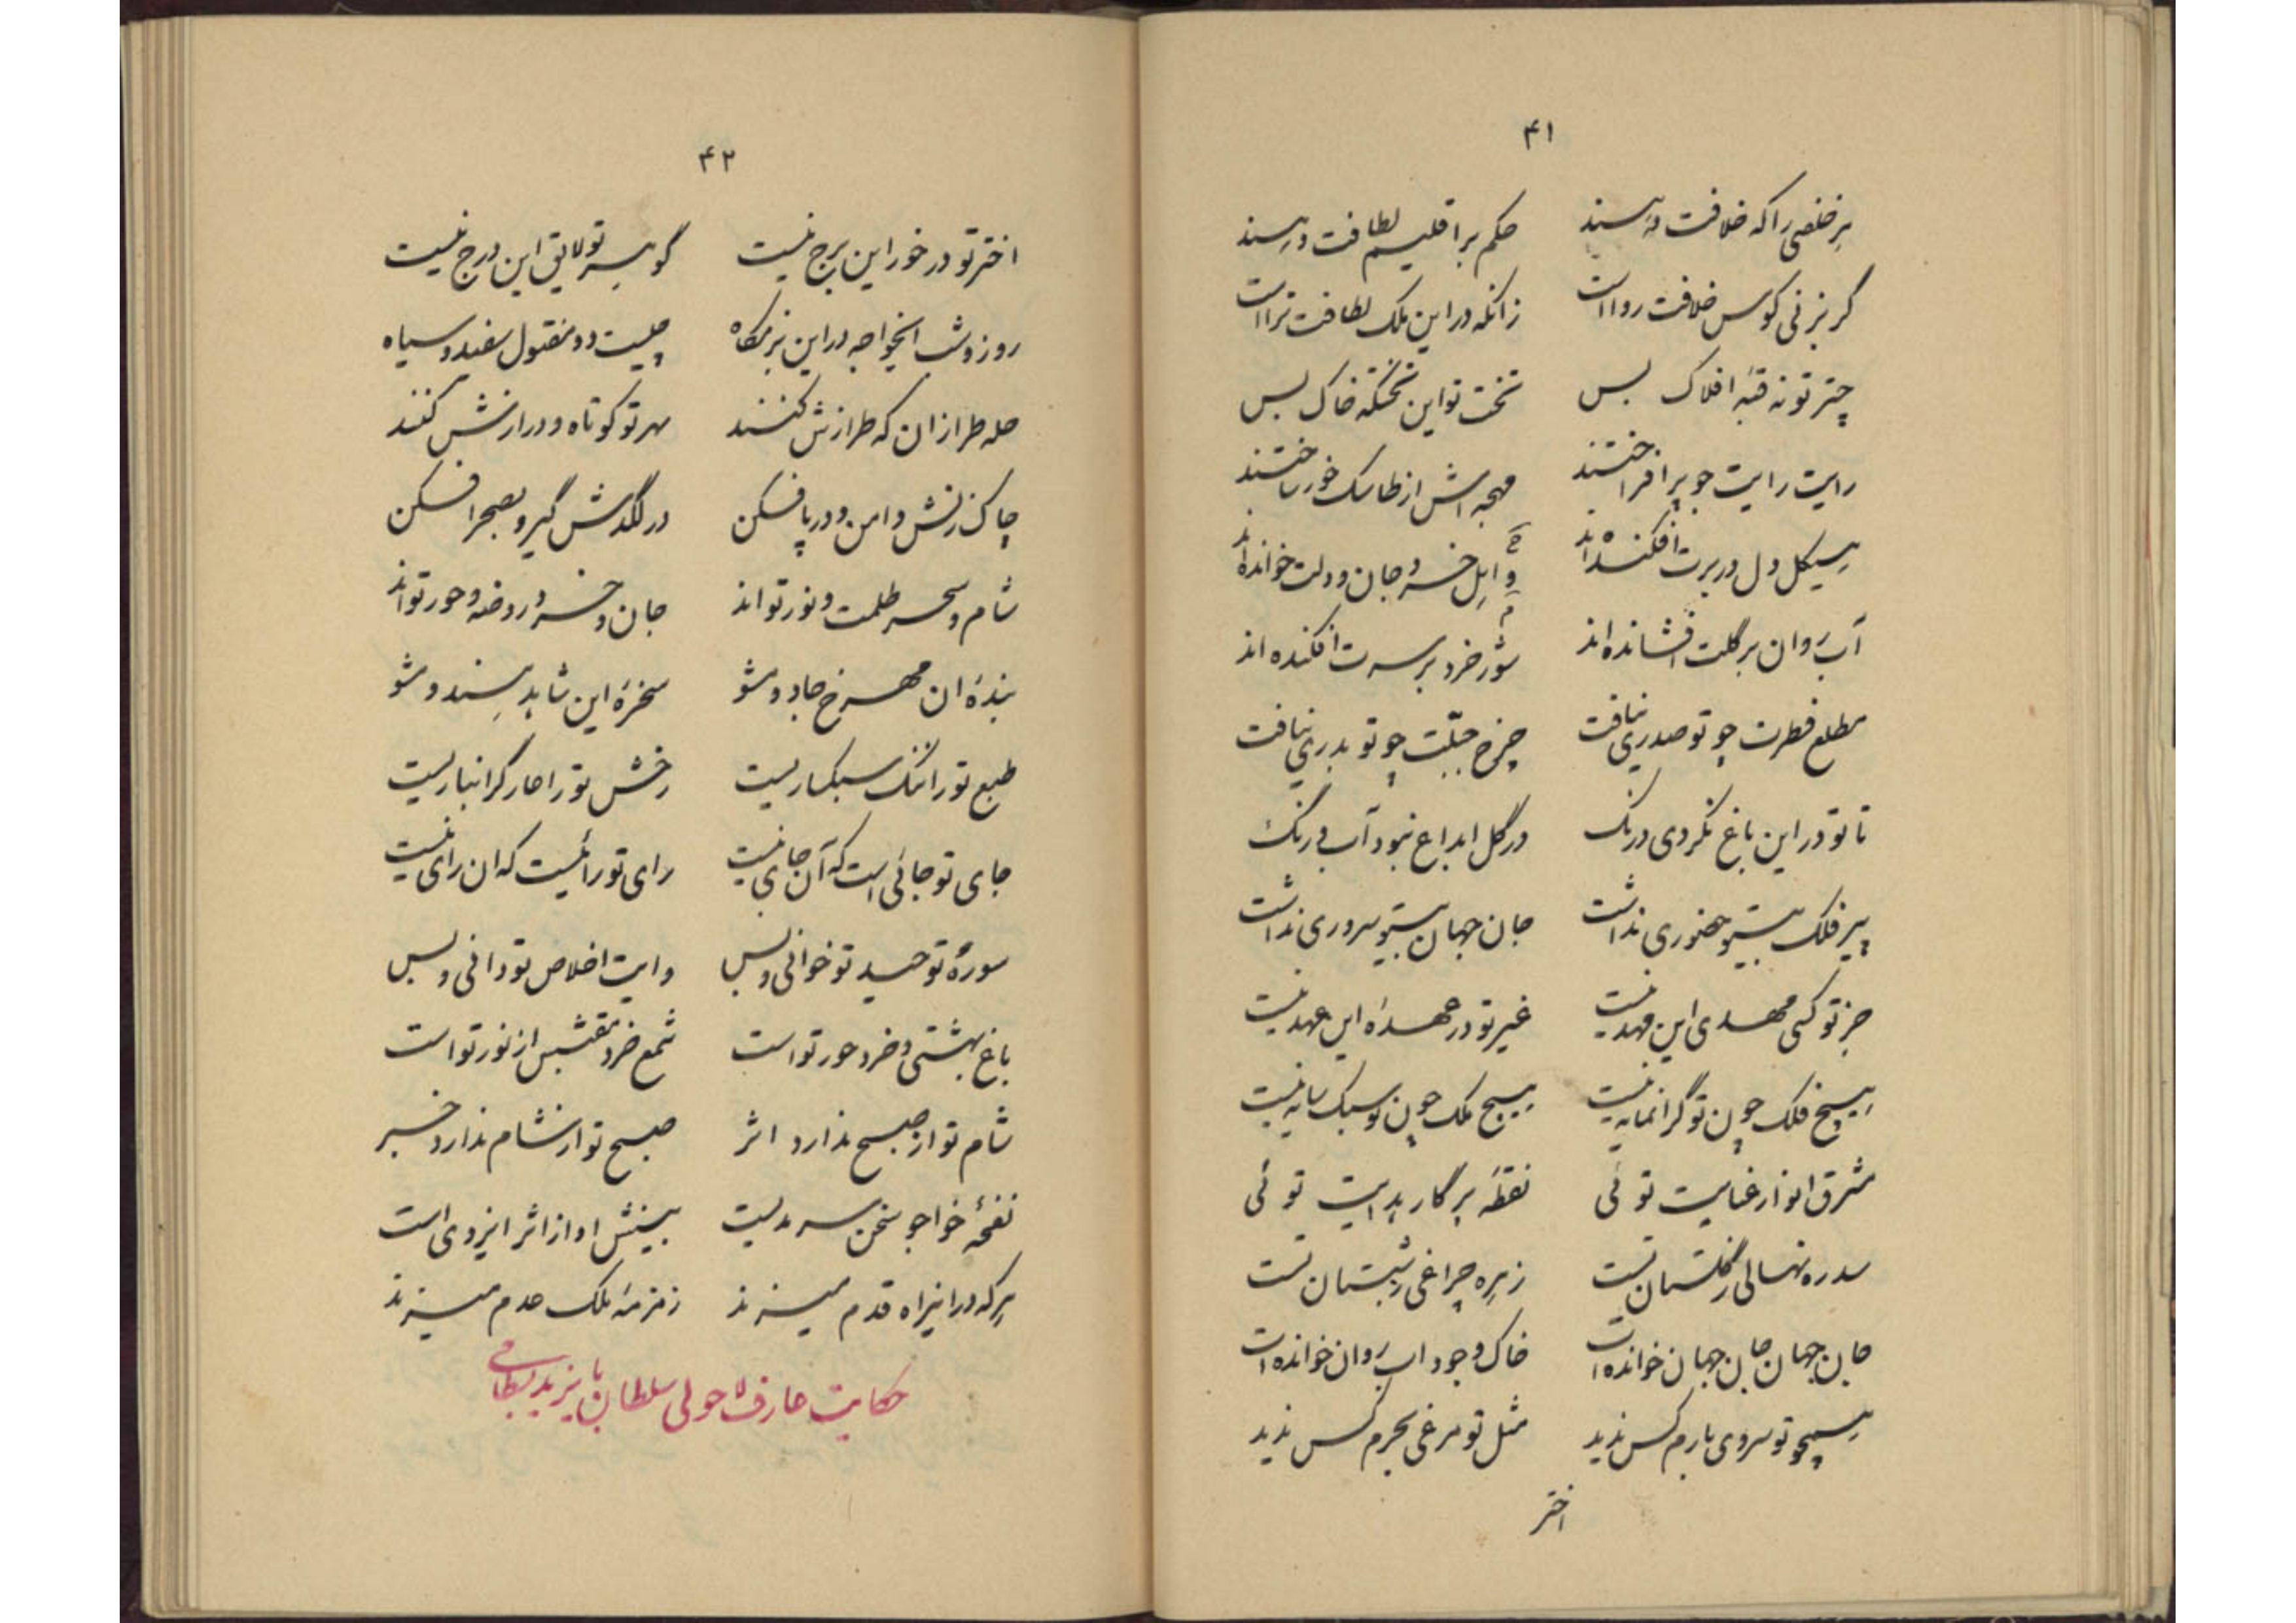 ۴۱
هر خلفی را که خلافت دهند حکم بر اقلیم لطافت دهند
گر بزنی کوس خلافت رواست زانکه در این ملک لطافت تراست
چتر تو نه قبه افلاک بس تخت تو این تختگه خاک بس
رایت رایت چو برافراختند مهجه اش از طاسک خور ساختند
هیکل دل در برت افکنده اند واهل خرد جان و دلت خوانده اند
آب روان بر گلت افشانده اند شور خرد بر سرت افکنده اند
مطلع فطرت چو تو صدری نیافت چرخ جبلّت چو تو بدری نیافت
تا تو در این باغ نکردی درنک در گل ابداع نبود آب و رنک
پیر فلک بیتو حضوری نداشت جان جهان بیتو سروری نداشت
جز تو کسی مهدی این مهد نیست غیر تو در عهدهٔ این عهد نیست
هیچ فلک چون تو گرانمایه نیست هیچ ملک چون تو سبک سایه نیست
مشرق انوار عنایت توئی نقطهٔ پرگار هدایت توئی
سدره نهالی ز گلستان تست زهره چراغی ز شبستان تست
جان جهان جان جهان خوانده است خاک وجود اب روان خوانده است
همچو تو سروی بارم کس ندید مثل تو مرغی بحرم کس ندید
اختر
۴۲
اختر تو در خور این برج نیست گوهر تو لایق این درج نیست
روز و شب ایخواجه در این بزمگاه چیست دو مفتول سفید و سیاه
حله طرازان که طرازش کنند بهر تو کوتاه و درازش کنند
چاک زنش دامن و در پا فکن در لگدش گیر و بصحرا فکن
شام و سحر ظلمت و نور تواند جان و خرد روضه و حور تواند
بندهٔ ان مهرخ جادو مشو سخرهٔ این شاهد هندو مشو
طبع تو را ننک سبکباریست رخش تو را عار گرانباریست
جای تو جائی است که آن جای نیست رای تو رائیست که ان رای نیست
سورهٔ توحید تو خوانی و بس وایت اخلاص تو دانی و بس
باغ بهشتی و خرد حور تو است شمع خرد مقتبس از نور تو است
شام تو از صبح ندارد اثر صبح تو از شام ندارد خبر
نفحهٔ خواجو سخن سرمدیست بینش او از اثر ایزدی است
هر که در اینراه قدم میزند زمزمهٔ ملک عدم میزند
حکایت عارف حولی سلطان بایزید بسطامی